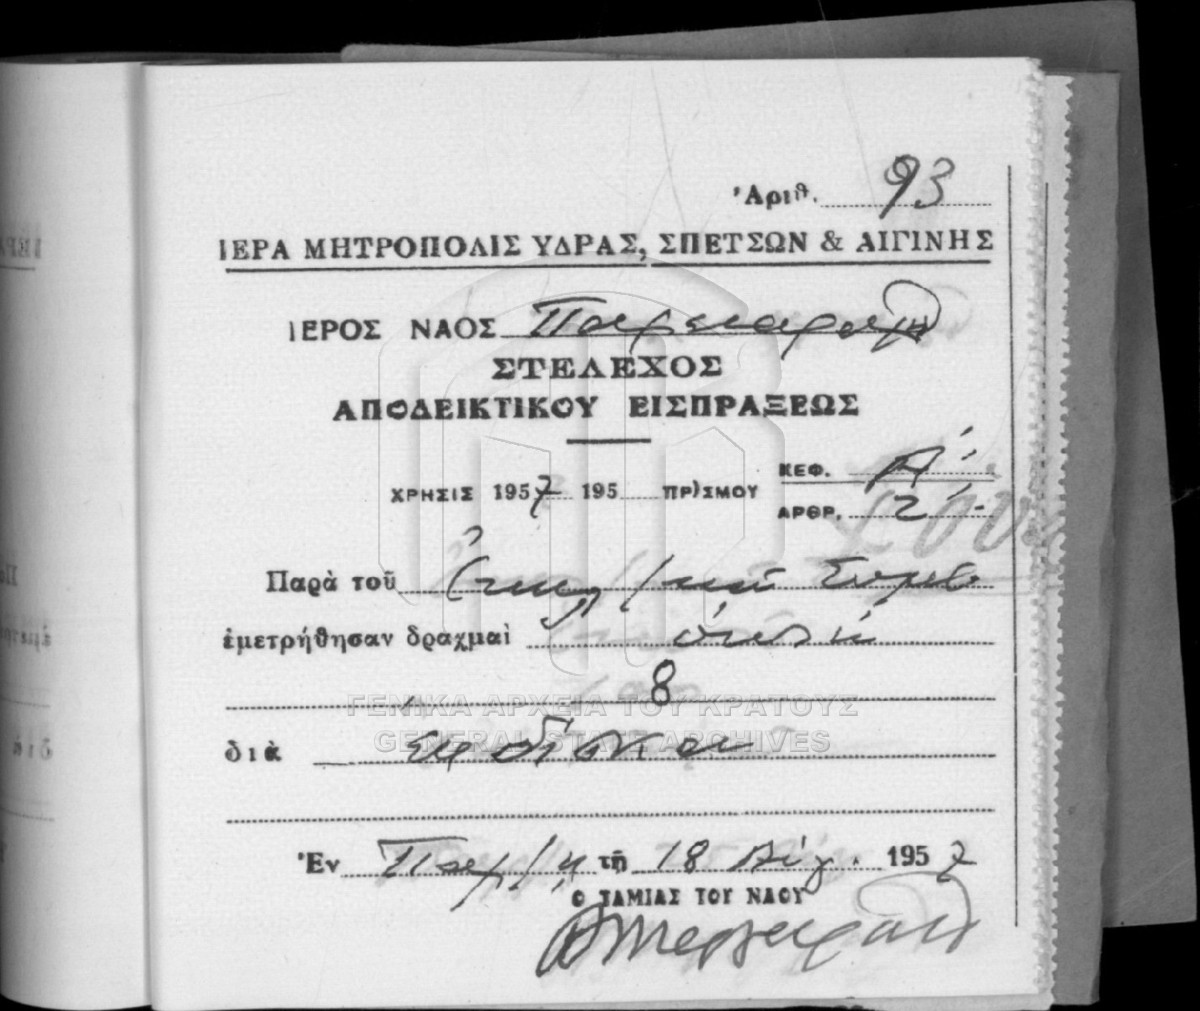 Ἀριθ. 93
ΙΕΡΑ ΜΗΤΡΟΠΟΛΙΣ ΥΔΡΑΣ, ΣΠΕΤΣΩΝ & ΑΙΓΙΝΗΣ
ΙΕΡΟΣ ΝΑΟΣ
ΣΤΕΛΕΧΟΣ
ΑΠΟΔΕΙΚΤΙΚΟΥ ΕΙΣΠΡΑΞΕΩΣ
ΚΕΦ. Α'
ΧΡΗΣΙΣ 1957 195 ΠΡ)ΣΜΟΥ
ΑΡΘΡ. 2
Παρὰ τοῦ
ἐμετρήθησαν δραχμαὶ ὀκτώ
8
ΓΕΝΙΚΑ ΑΡΧΕΙΑ ΤΟΥ ΚΡΑΤΟΥΣ
GENERAL STATE ARCHIVES
διὰ
Ἐν τῇ 18 Αὐγ. 1957
Ο ΤΑΜΙΑΣ ΤΟΥ ΝΑΟΥ